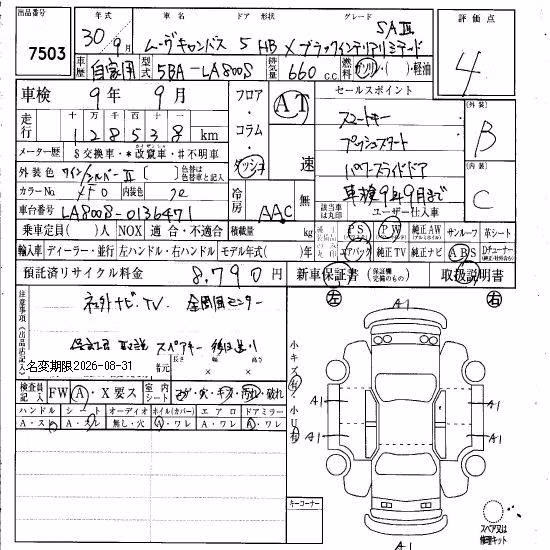 出品番号 年式 車名 ドア 形状 グレード 評価点
7503 30年 9月 ムーヴキャンバス 5 HB Xブラックインテリアリミテッド SAⅢ 4
車歴 自家用 型式 5BA-LA800S 排気量 660 c.c. 燃料 ガソリン・( )・軽油
車検 9年 9月 フロア・コラム・ダッシュ AT 速 セールスポイント
走行 十 万 千 百 十 一
128538 km
スマートキー
プッシュスタート
パワースライドドア
車検9年9月まで
外装 B
内装 C
メーター歴 $交換車・*改ざん車・#不明車
外装色 ワイン/シルバーⅡ 色替は色替車と記入
カラーNo. XF0 内装色 冷房 AAC 無 該当車は丸印 ユーザー仕入車
車台番号 LA800S-0136471
乗車定員( )人 NOX 適合・不適合 積載量 kg PS PW 純正AW サンルーフ 革シート
輸入車 ディーラー・並行 左ハンドル・右ハンドル モデル年式( )年 エアバック 純正TV 純正ナビ ABS Dチューナー
預託済リサイクル料金 8,790円 新車保証書 取扱説明書
左 右
注意事項(出品店記入)
ネット ナビ・TV 全周囲モニター
保証書 取説 スペアキー 後日送り
名変期限2026-08-31
長さ 幅 高さ
検査員記入 FW A・X要ス 室内シート コゲ・穴・キズ・汚れ・破れ
ハンドル シート オーディオ ホイル(カバー) エアロ ドアミラー
A・スレ A・スレ 無し・穴 A・ワレ A・ワレ A・ワレ
小キズ有・小U有
A1
A1 A1
A1 A1
A1
A1
キーコーナー
スペア又は修理キット